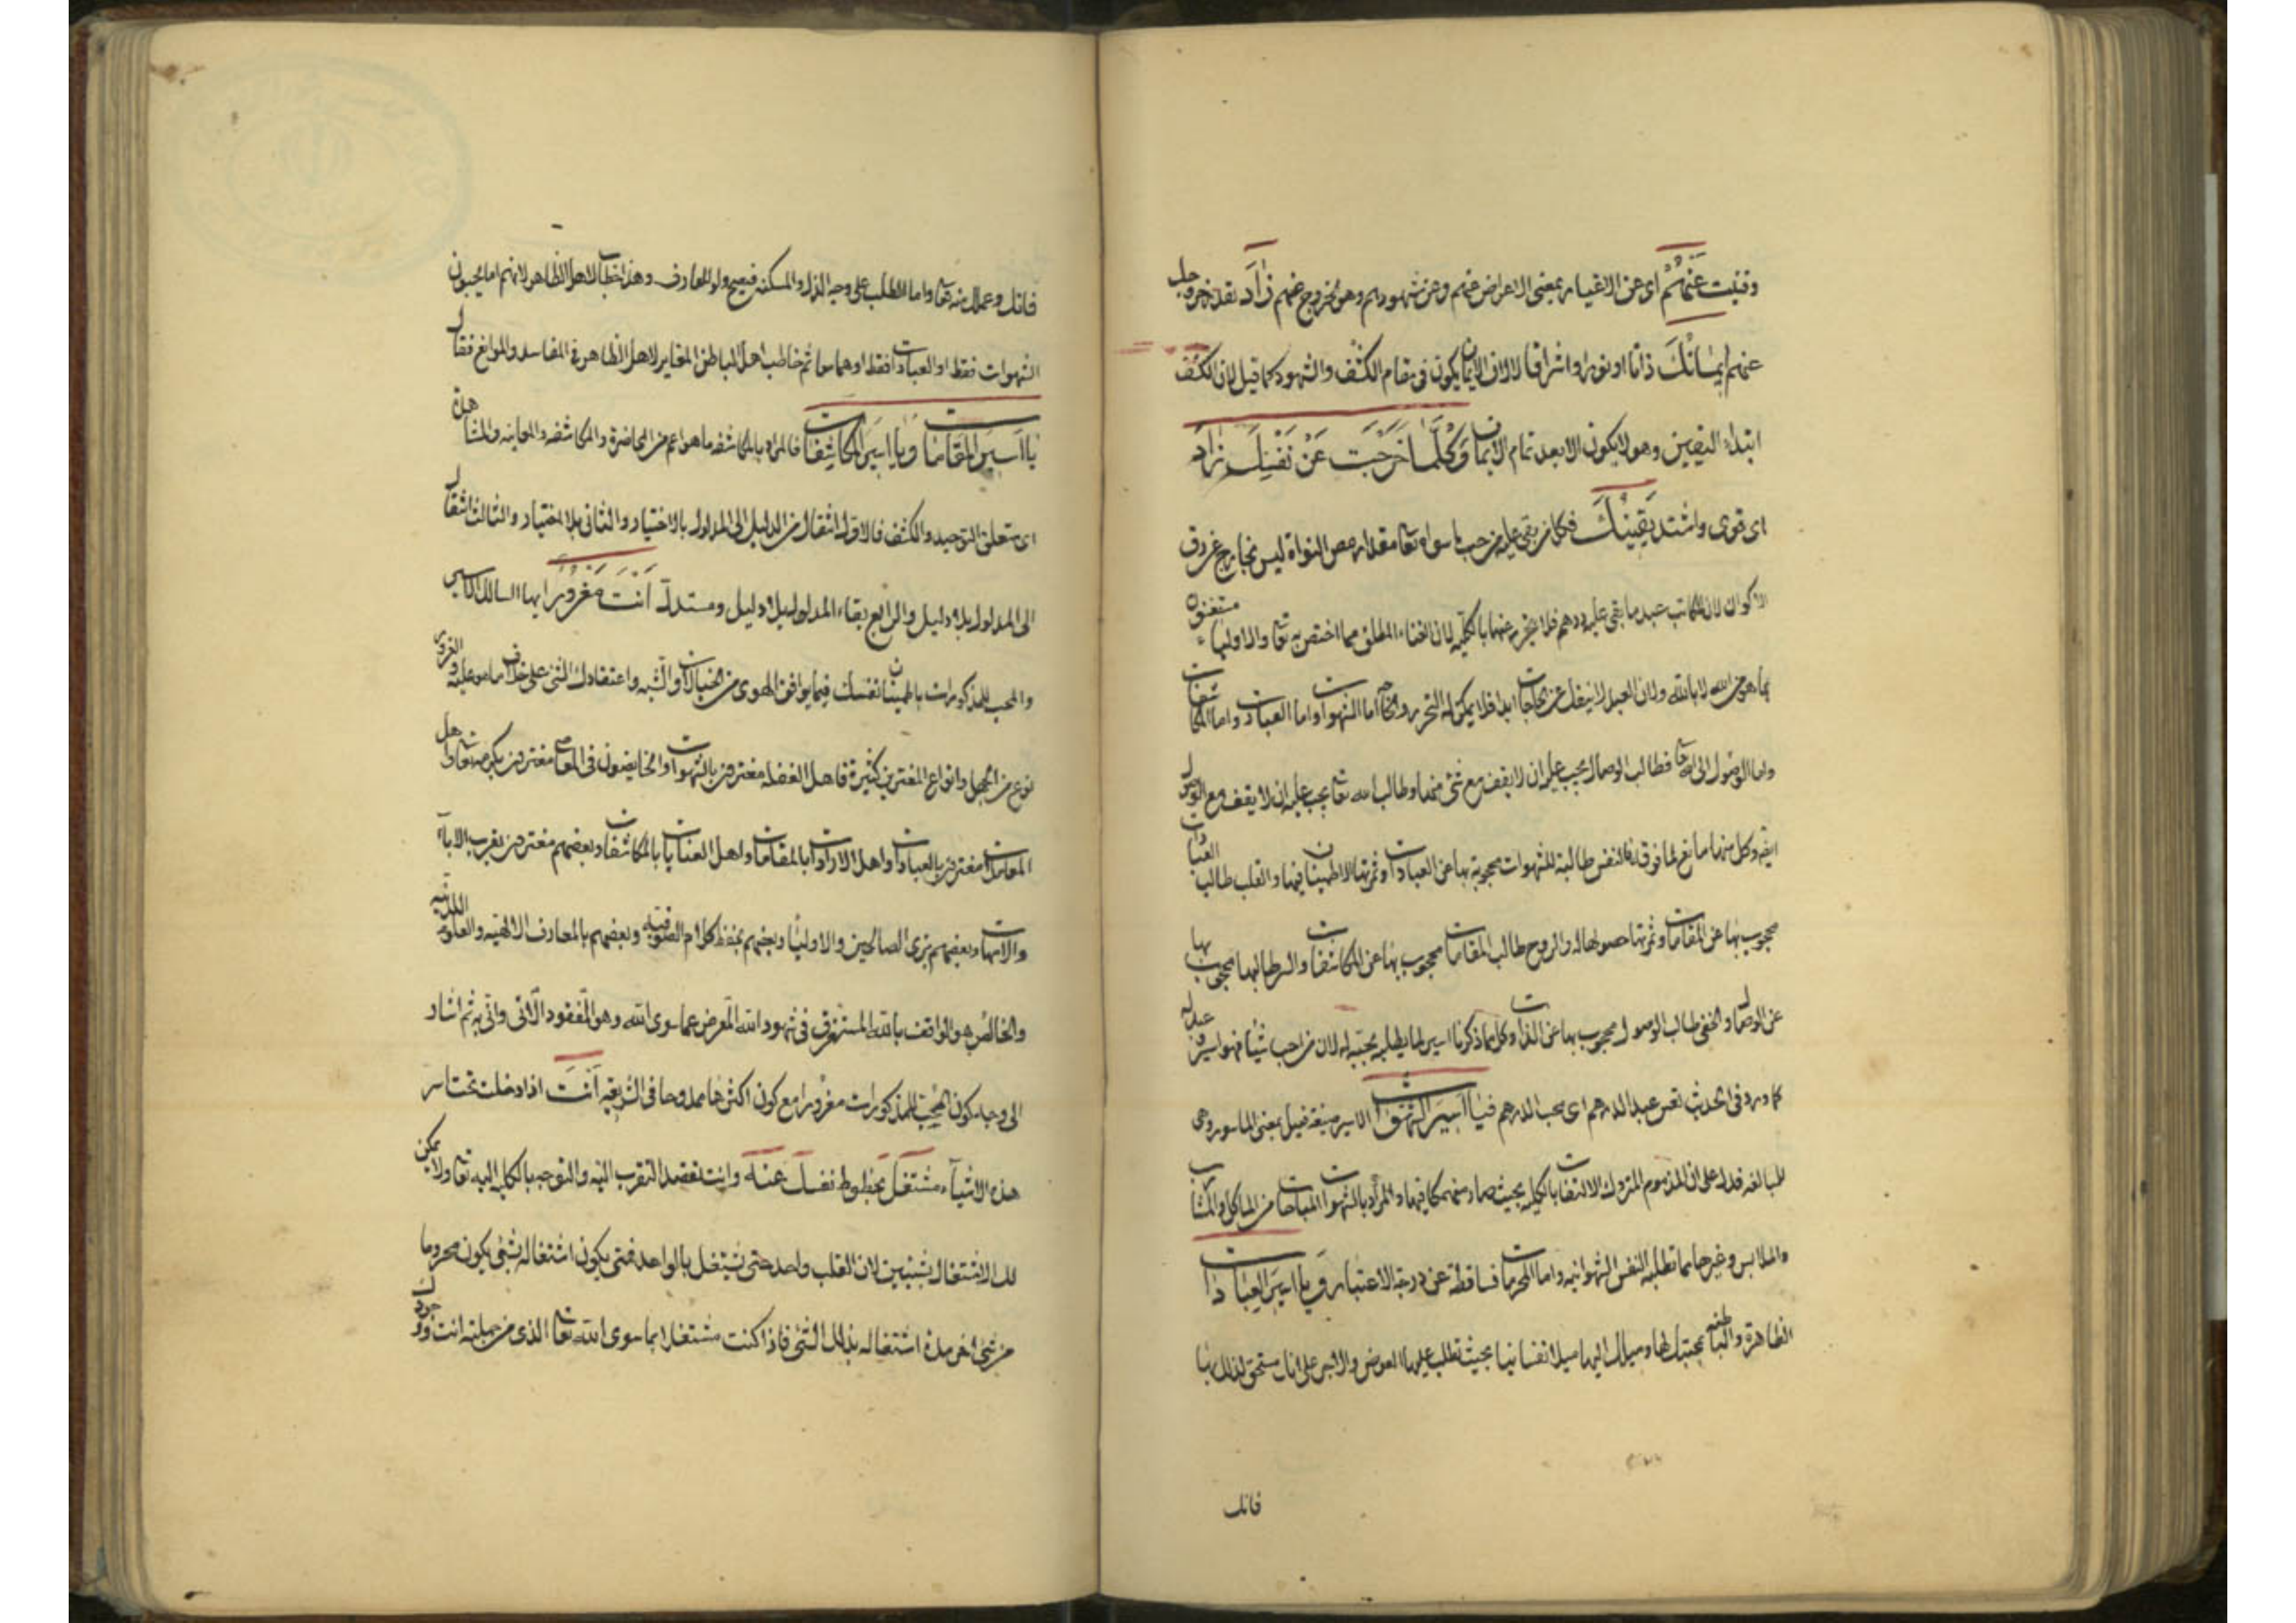 وفنيت عَنْهُمْ اى عن الاغيار بمعنى الاعراض عنهم وعن شهودهم وهو الخروج عنهم زَادَ بقدر خروجك
عنهم اِيمَانُكَ ذاتا او نورا واشراقا لان الايمان يكون فى مقام الكشف والشهود كما قيل ان الكشف
ابتداء اليقين وهو لا يكون الا بعد تمام الايمان وَكُلَّمَا خَرَجْتَ عَنْ نَفْسِكَ زَادَ
اى قوى واشتد يَقِينُكَ فكل من بقى عليه من حب ما سواه تعا مقدار مص النواة ليس بخارج عن رق
الاكوان لان المكاتب عبد ما بقى عليه درهم فلا يتحرر عنها بالكلية لان الغناء المطلق مما اختص به تعا والاولياء مستغنون
بما هو من الله لا بالله ولان العبد لا ينفك عن الحاجات ابدا فلا يمكن له التحرر اما الشهوات واما العبادات واما المكاشفات
واما الوصول الى الله تعا فطالب الوصال يجب عليه ان لا يقف مع شئ منها وطالب الله تعا يجب عليه ان لا يقف مع الوصول
ايضا وكل منها مانع لما فوقه فالنفس طالبة للشهوات محجوبة بها عن العبادات وثمرتها الاطمينان فيها والقلب طالب العبادات
محجوب بها عن المقامات وثمرتها حصولها له والروح طالب المقامات محجوب بها عن المكاشفات والسر طالبها محجوب بها
عن الوصال والخفى طالب الوصول محجوب بها عن الذات وكل مما ذكرنا اسير لما يطلبه بحبته له لان من احب شيئا فهو اسيره وعبد له
كما ورد فى الحديث تعس عبد الدرهم اى محب الدرهم فَيَا اَسِيرَ الشَّهَوَاتِ الاسير صيغة فعيل بمعنى المأسور وهى
للمبالغة فدل على ان المذموم المتروك الالتفات بالكلية بحيث صار منهمكا فيها والمراد بالشهوات المباحات من المآكل والمشارب
والملابس وغيرها مما تطلبه النفس الشهوانية واما المحرمات فساقطة عن درجة الاعتبار وَيَا اَسِيرَ العِبَادَاتِ
الظاهرة والباطنة بمحبتك لها وميلك اليها ميلا نفسانيا بحيث تطلب عليها العوض والاجر على انك مستحق لذلك بها
فانك
فانك وعملك منه تعا واما الطلب على وجه الذل والمسكنة فيصح ولو للعارف وهذا خطاب لاهل الظاهر لانهم اما يحبون
الشهوات فقط او العبادات فقط او هما معا ثم خاطب اهل الباطن المغاير لاهل الظاهر فى المقاصد والموانع فقال
يَا اَسِيرَ المَقَامَاتِ وَيَا اَسِيرَ المُكَاشَفَاتِ فالمراد بالمكاشفة ما هو اعم من المحاضرة والمكاشفة والمعاينة والمشاهدة
اى متعلق التوحيد والكشف فالاول انتقال من الدليل الى المدلول بالاختيار والثانى بلا اختيار والثالث انتقال
الى المدلول بلا دليل والرابع بقاء المدلول بلا دليل ومستدل اَنْتَ مَغْرُورٌ ايها السالك الاسير
والمحب للمذكورات باطمينان نفسك فيما يوافق الهوى من الخيالات والشبه واعتقادك الشئ على خلاف ما هو عليه والغرور
نوع من الجهل وانواع المغترين كثيرة فاهل الغفلة مغترون بالشهوات والخايضون فى المعاصى مغترون بكرمه تعا واهل
المعاملات مغترون بالعبادات واهل الارادات بالمقامات واهل العنايات بالمكاشفات وبعضهم مغترون بقرب الآباء
والامهات وبعضهم بزى الصالحين والاولياء وبعضهم بحفظ كلام الصوفية وبعضهم بالمعارف الالهية والعلوم اللدنية
والخالص هو الواقف بالله المستغرق فى شهود الله المعرض عما سوى الله وهو المفقود الآتى وانى به ثم اشار
الى وجه كون المحب للمذكورات مغرورا مع كون اكثرها ممدوحا فى الشريعة اَنْتَ اذا دخلت تحت اسر
هذه الاشياء مُشْتَغِلٌ بحظوظ نفسك عَنْهُ وانت تقصد التقرب اليه والتوجه بالكلية اليه تعا ولا يمكن
لك الاشتغال بشيئين لان القلب واحد حتى يشتغل بالواحد فمتى يكون اشتغاله بشئ يكون محروما
من شئ آخر مدة اشتغاله بذلك الشئ فاذا كنت مشتغلا بما سوى الله تعا الذى من جملته انت ووجودك